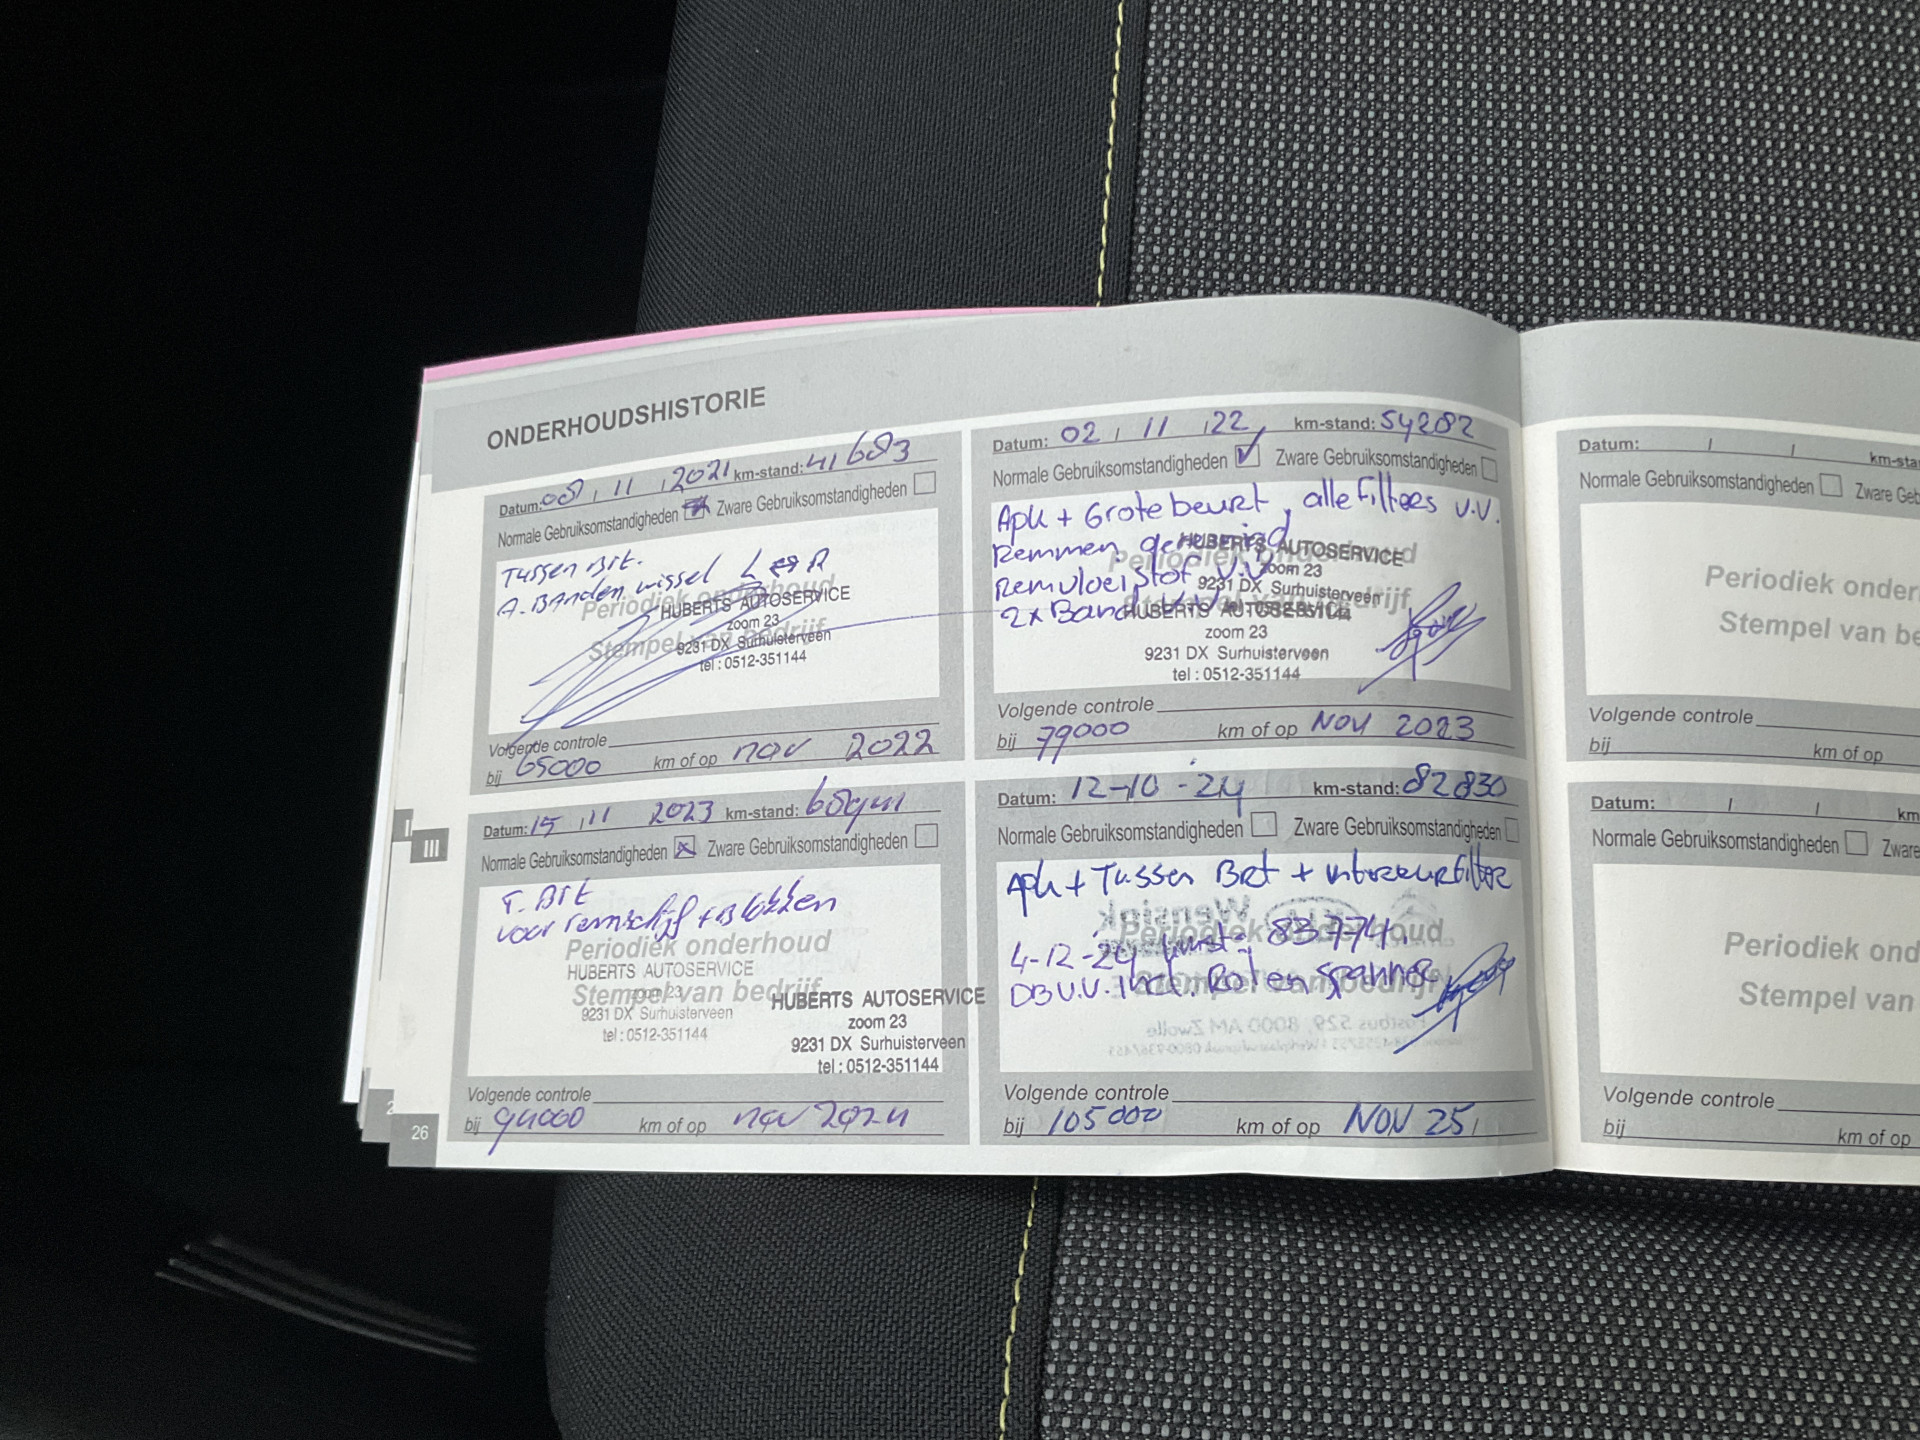 ONDERHOUDSHISTORIE
Datum: 08 / 11 / 2021 km-stand: 41683
Normale Gebruiksomstandigheden Zware Gebruiksomstandigheden
Tussen Brt.
A. Banden wissel L R
Periodiek onderhoud
Stempel van bedrijf
HUBERTS AUTOSERVICE
zoom 23
9231 DX Surhuisterveen
tel : 0512-351144
Volgende controle
bij 65000 km of op nov 2022
Datum: 02 / 11 / 22 km-stand: 54282
Normale Gebruiksomstandigheden Zware Gebruiksomstandigheden
Apk + Grote beurt, alle Filters V.V.
Remmen gereinigd
Remvloeistof V.V
2x Band V.V
Periodiek onderhoud
Stempel van bedrijf
HUBERTS AUTOSERVICE
zoom 23
9231 DX Surhuisterveen
tel : 0512-351144
HUBERTS AUTOSERVICE
zoom 23
9231 DX Surhuisterveen
tel : 0512-351144
Volgende controle
bij 79000 km of op NOV 2023
Datum: 15 / 11 2023 km-stand:
Normale Gebruiksomstandigheden Zware Gebruiksomstandigheden
T. Brt
voor remschijf + Blokken
Periodiek onderhoud
Stempel van bedrijf
HUBERTS AUTOSERVICE
zoom 23
9231 DX Surhuisterveen
tel : 0512-351144
HUBERTS AUTOSERVICE
zoom 23
9231 DX Surhuisterveen
tel : 0512-351144
Volgende controle
bij 94000 km of op nov 2024
Datum: 12-10-24 km-stand: 82830
Normale Gebruiksomstandigheden Zware Gebruiksomstandigheden
Apk + Tussen Brt + interieurfilter
4-12-24 kmst: 83774.
DB V.V. incl. Rol en spanner
Periodiek onderhoud
Stempel van bedrijf
Volgende controle
bij 105000 km of op NOV 25
I
III
2
26
Datum: / / km-sta
Normale Gebruiksomstandigheden Zware Geb
Periodiek onder
Stempel van be
Volgende controle
bij km of op
Datum: / / km
Normale Gebruiksomstandigheden Zware
Periodiek ond
Stempel van
Volgende controle
bij km of op